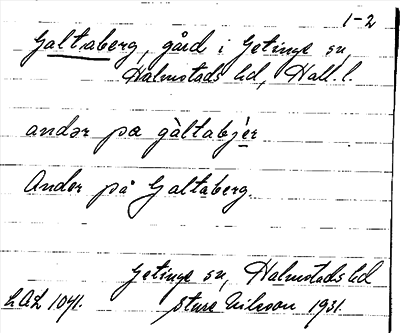 1-2
Galtaberg, gård i Getinge sn,
Halmstads hd, Hall. l.
andər pa gàltabjer
Ander på Galtaberg.
Getinge sn, Halmstads hd
LAL 1041. Sture Nilsson 1931.